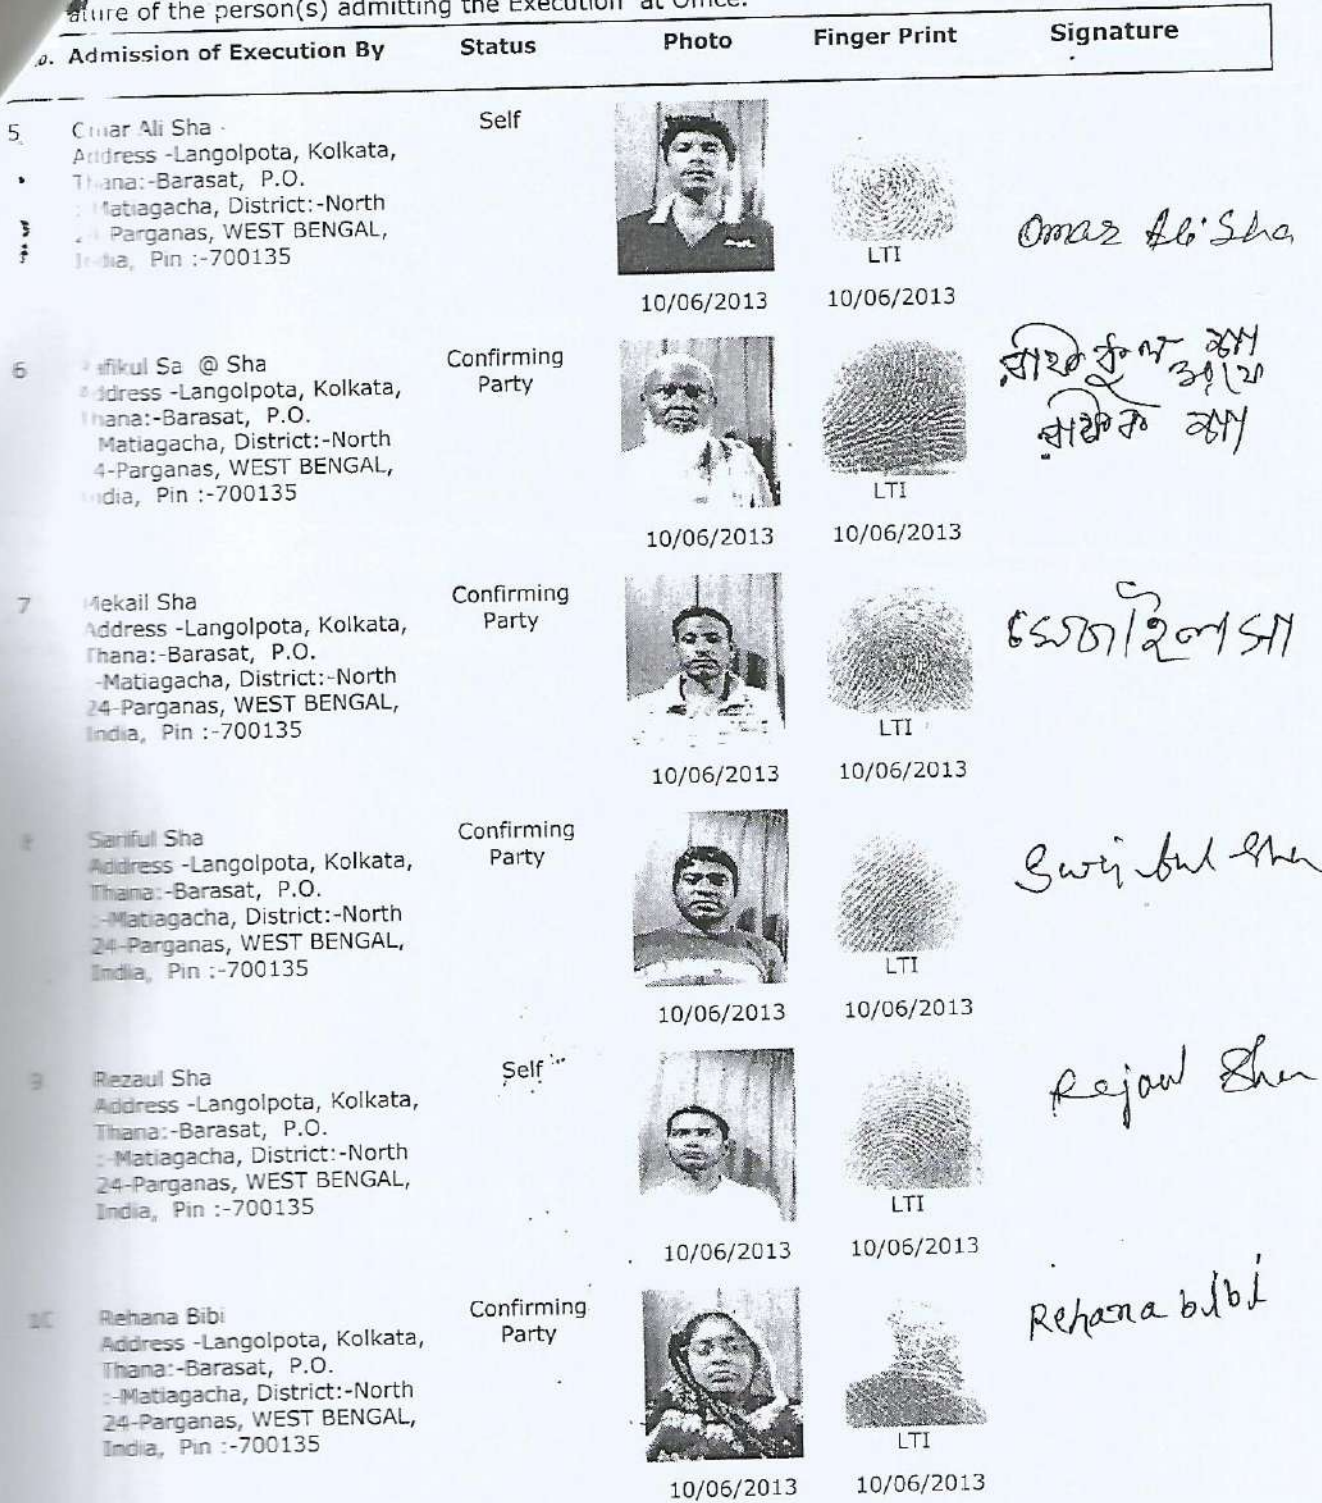 ature of the person(s) admitting the Execution at Office.
o. Admission of Execution By Status Photo Finger Print Signature
5 Omar Ali Sha Self
Address -Langolpota, Kolkata,
Thana:-Barasat, P.O.
:-Matiagacha, District:-North
Parganas, WEST BENGAL,
India, Pin :-700135
LTI
10/06/2013 10/06/2013
Omar Ali Sha
6 Rafikul Sa @ Sha Confirming
Party
Address -Langolpota, Kolkata,
Thana:-Barasat, P.O.
Matiagacha, District:-North
4-Parganas, WEST BENGAL,
India, Pin :-700135
LTI
10/06/2013 10/06/2013
7 Mekail Sha Confirming
Party
Address -Langolpota, Kolkata,
Thana:-Barasat, P.O.
-Matiagacha, District:-North
24-Parganas, WEST BENGAL,
India, Pin :-700135
LTI
10/06/2013 10/06/2013
8 Sariful Sha Confirming
Party
Address -Langolpota, Kolkata,
Thana:-Barasat, P.O.
:-Matiagacha, District:-North
24-Parganas, WEST BENGAL,
India, Pin :-700135
LTI
10/06/2013 10/06/2013
9 Rezaul Sha Self
Address -Langolpota, Kolkata,
Thana:-Barasat, P.O.
:-Matiagacha, District:-North
24-Parganas, WEST BENGAL,
India, Pin :-700135
LTI
10/06/2013 10/06/2013
Rejaul Sha
10 Rehana Bibi Confirming
Party
Address -Langolpota, Kolkata,
Thana:-Barasat, P.O.
:-Matiagacha, District:-North
24-Parganas, WEST BENGAL,
India, Pin :-700135
LTI
10/06/2013 10/06/2013
Rehana bibi